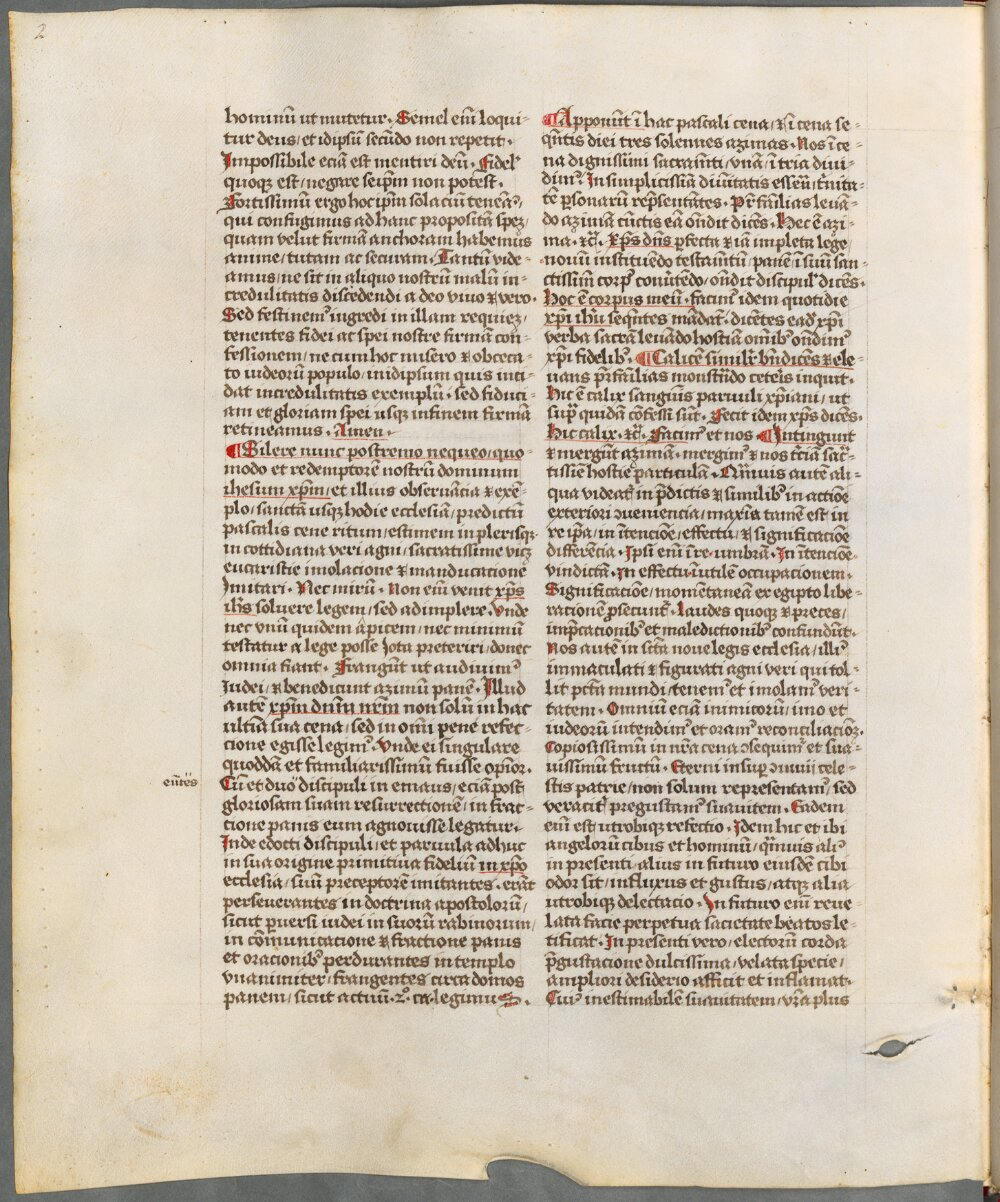 2
hominū ut mutetur. Semel eīm loqui-
tur deus/ et idipsū secūdo non repetit.
Impossibile eciā est mentiri deū. Fidelꝰ
quoqꝫ est/ negare seip̄m non potest.
Fortissimū ergo hoc ip̄m solaciū teneaꝰ/
qui confugimus ad hanc propositā speꝫ/
quam velut firmā anchoram habemus
anime/ tutam ac securam. Tantū vide-
amus/ ne sit in aliquo nostrū malū in-
credulitatis discedendi a deo vivo ⁊ vero.
Sed festinemꝰ ingredi in illam requieꝫ/
tenentes fidei ac spei nostre firmā con-
fessionem/ ne cum hoc misero ⁊ obceca-
to iudeorū populo/ in idipsum quis inci-
dat incredulitatis exemplū. sed fiduci-
am et gloriam spei usqꝫ in finem firmā
retineamus. Amen.
¶ Silere nunc postremo nequeo/ quo-
modo et redemptorē nostrū dominum
ihesum xp̄m/ et illius observācia ⁊ exē-
plo/ sanctā usqꝫ hodie ecclesiā/ predictū
pascalis cene ritum/ estimem in plerisqꝫ
in cottidiana veri agni/ sacratissime viꝫ
eucaristie imolacione ⁊ manducacione
Imitari. Nec mirū. Non eīm venit xp̄s
ih̄s soluere legem/ sed adimplere. Vnde
nec vnū quidem apicem/ nec minimū
testatur a lege posse Iota preteriri/ donec
omnia fiant. Frangūt ut audivimꝰ
Iudei/ ⁊ benedicunt azimū panē. Illud
autē xp̄m dn̄m nr̄m non solū in hac
ultīa sua cena/ sed in om̄i pene refec-
cione egisse legimꝰ. Vnde ei singulare
quoddā et familiarissimū fuisse opīor.
eūtes
Cū et duo discipuli in emaus/ eciā post
gloriosam suam resurrectionē/ in frac-
cione panis eum agnouisse legatur.
Inde edocti discipuli/ et parvula adhuc
in sua origine primitiua fidelium in xp̄o
ecclesia/ suū preceptorē imitantes. erāt
perseverantes in doctrina apostolorū/
sicut ꝑversi iudei in suorū rabinorum/
in cōmunicacione ⁊ fractione panis
et oracionibꝰ perdurantes in templo
vnanimiter/ frangentes circa domos
panem/ sicut actuū .2.º ca. legimus.
¶ Apponūt ī hac pascali cena/ ⁊ ī cena se-
quētis diei tres solennes azimas. Nos ī ce-
na dignissimi sacramēti/ vnā ī tria divi-
dimꝰ. In simplicissiā divītatis essen̄/ t̄nita-
tē ꝑsonarū repn̄tantes. Pr̄familias levā-
do azimā cūctis eā on̄dit dicēs. Hec ē azi-
ma. ⁊c̄. xp̄s dn̄s ꝑfecta ⁊ iā impleta lege/
novū instituēdo testamtū/ panē ī suū san-
ctissim̄ corpꝰ conūtēdo/ on̄dit discipul̄ dicēs.
Hoc ē corpus meū. Facimꝰ idem quotidie
xp̄i ih̄u seqūtes mādat̄. dicētes eadē xp̄i
verba sacrā levādo hostiā om̄ibꝰ on̄dimꝰ
xp̄i fidelibꝰ. ¶ Calicē similit̄ bn̄dicēs ⁊ ele-
uans pr̄familias monstrādo ceteris inquit.
Hic ē calix sanguis parvuli xp̄iani/ ut
supꝰ quidā cōfessi sūt. Fecit idem xp̄s dicēs.
Hic calix. ⁊c̄. Facimꝰ et nos. ¶ Intingunt
⁊ mergūt azimā. mergimꝰ ⁊ nos t̄ciā sac̄-
tissiē hostie particulā. Quāvis autē ali-
qua videat̄ in p̄dictis ⁊ similibꝰ in actiōe
exteriori ꝯueniencia/ maxīa tamē est in
re ip̄a/ in ītenciōe/ effectu/ ⁊ significaciōe
differēcia. Ipsi eīm ī re umbrā. In ītenciōe
vindictā. In effectu inutilē occupacionem.
Significatiōe/ momētaneā ex egipto libe-
rationē ꝓsecunt̄. Laudes quoqꝫ ⁊ preces/
imp̄cationibꝰ et maledictionibꝰ confundūt.
Nos autē in sc̄ta noue legis ecclesia/ illiꝰ
immaculati ⁊ figurati agni veri qui tol-
lit pctā mundi/ tenemꝰ et imolamꝰ veri-
tatem. Omniū eciā inimicorū/ imo et
iudeorū intendimꝰ et oramꝰ reconciliacioꝫ.
Copiosissimū in nr̄a cena ꝯsequimꝰ et sua-
uissimū fructū. Eterni insuꝑ ꝯuivii cele-
stis patrie/ non solum representamꝰ/ sed
veracit̄ pregustamꝰ suavitem. Eadem
eīm est utrobiqꝫ refectio. Idem hic et ibi
angelorū cibus et hominū/ quāvis aliꝰ
in presenti alius in futuro eiusdē cibi
odor sit/ influxus et gustus/ atqꝫ alia
utrobiqꝫ delectacio. In futuro eīm reve-
lata facie perpetua sacietate beatos le-
tificat. In presenti vero/ electorū corda
p̄gustacione dulcissima/ velata specie/
ampliori desiderio afficit et inflamat.
Cuiꝰ inestimabilē suauitatem/ vr̄a plus